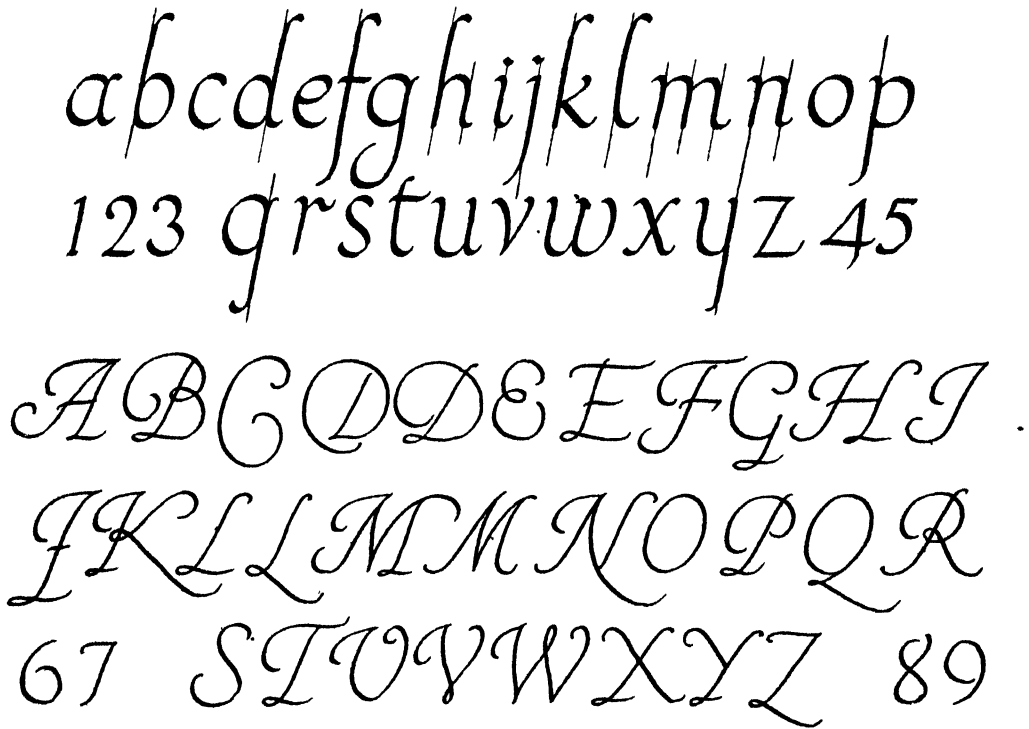 abcdefghijklmnop
123 qrstuvwxyz 45
ABCDDEEFGHI
JKLLMMNOPQR
67 STUVWXYZ 89